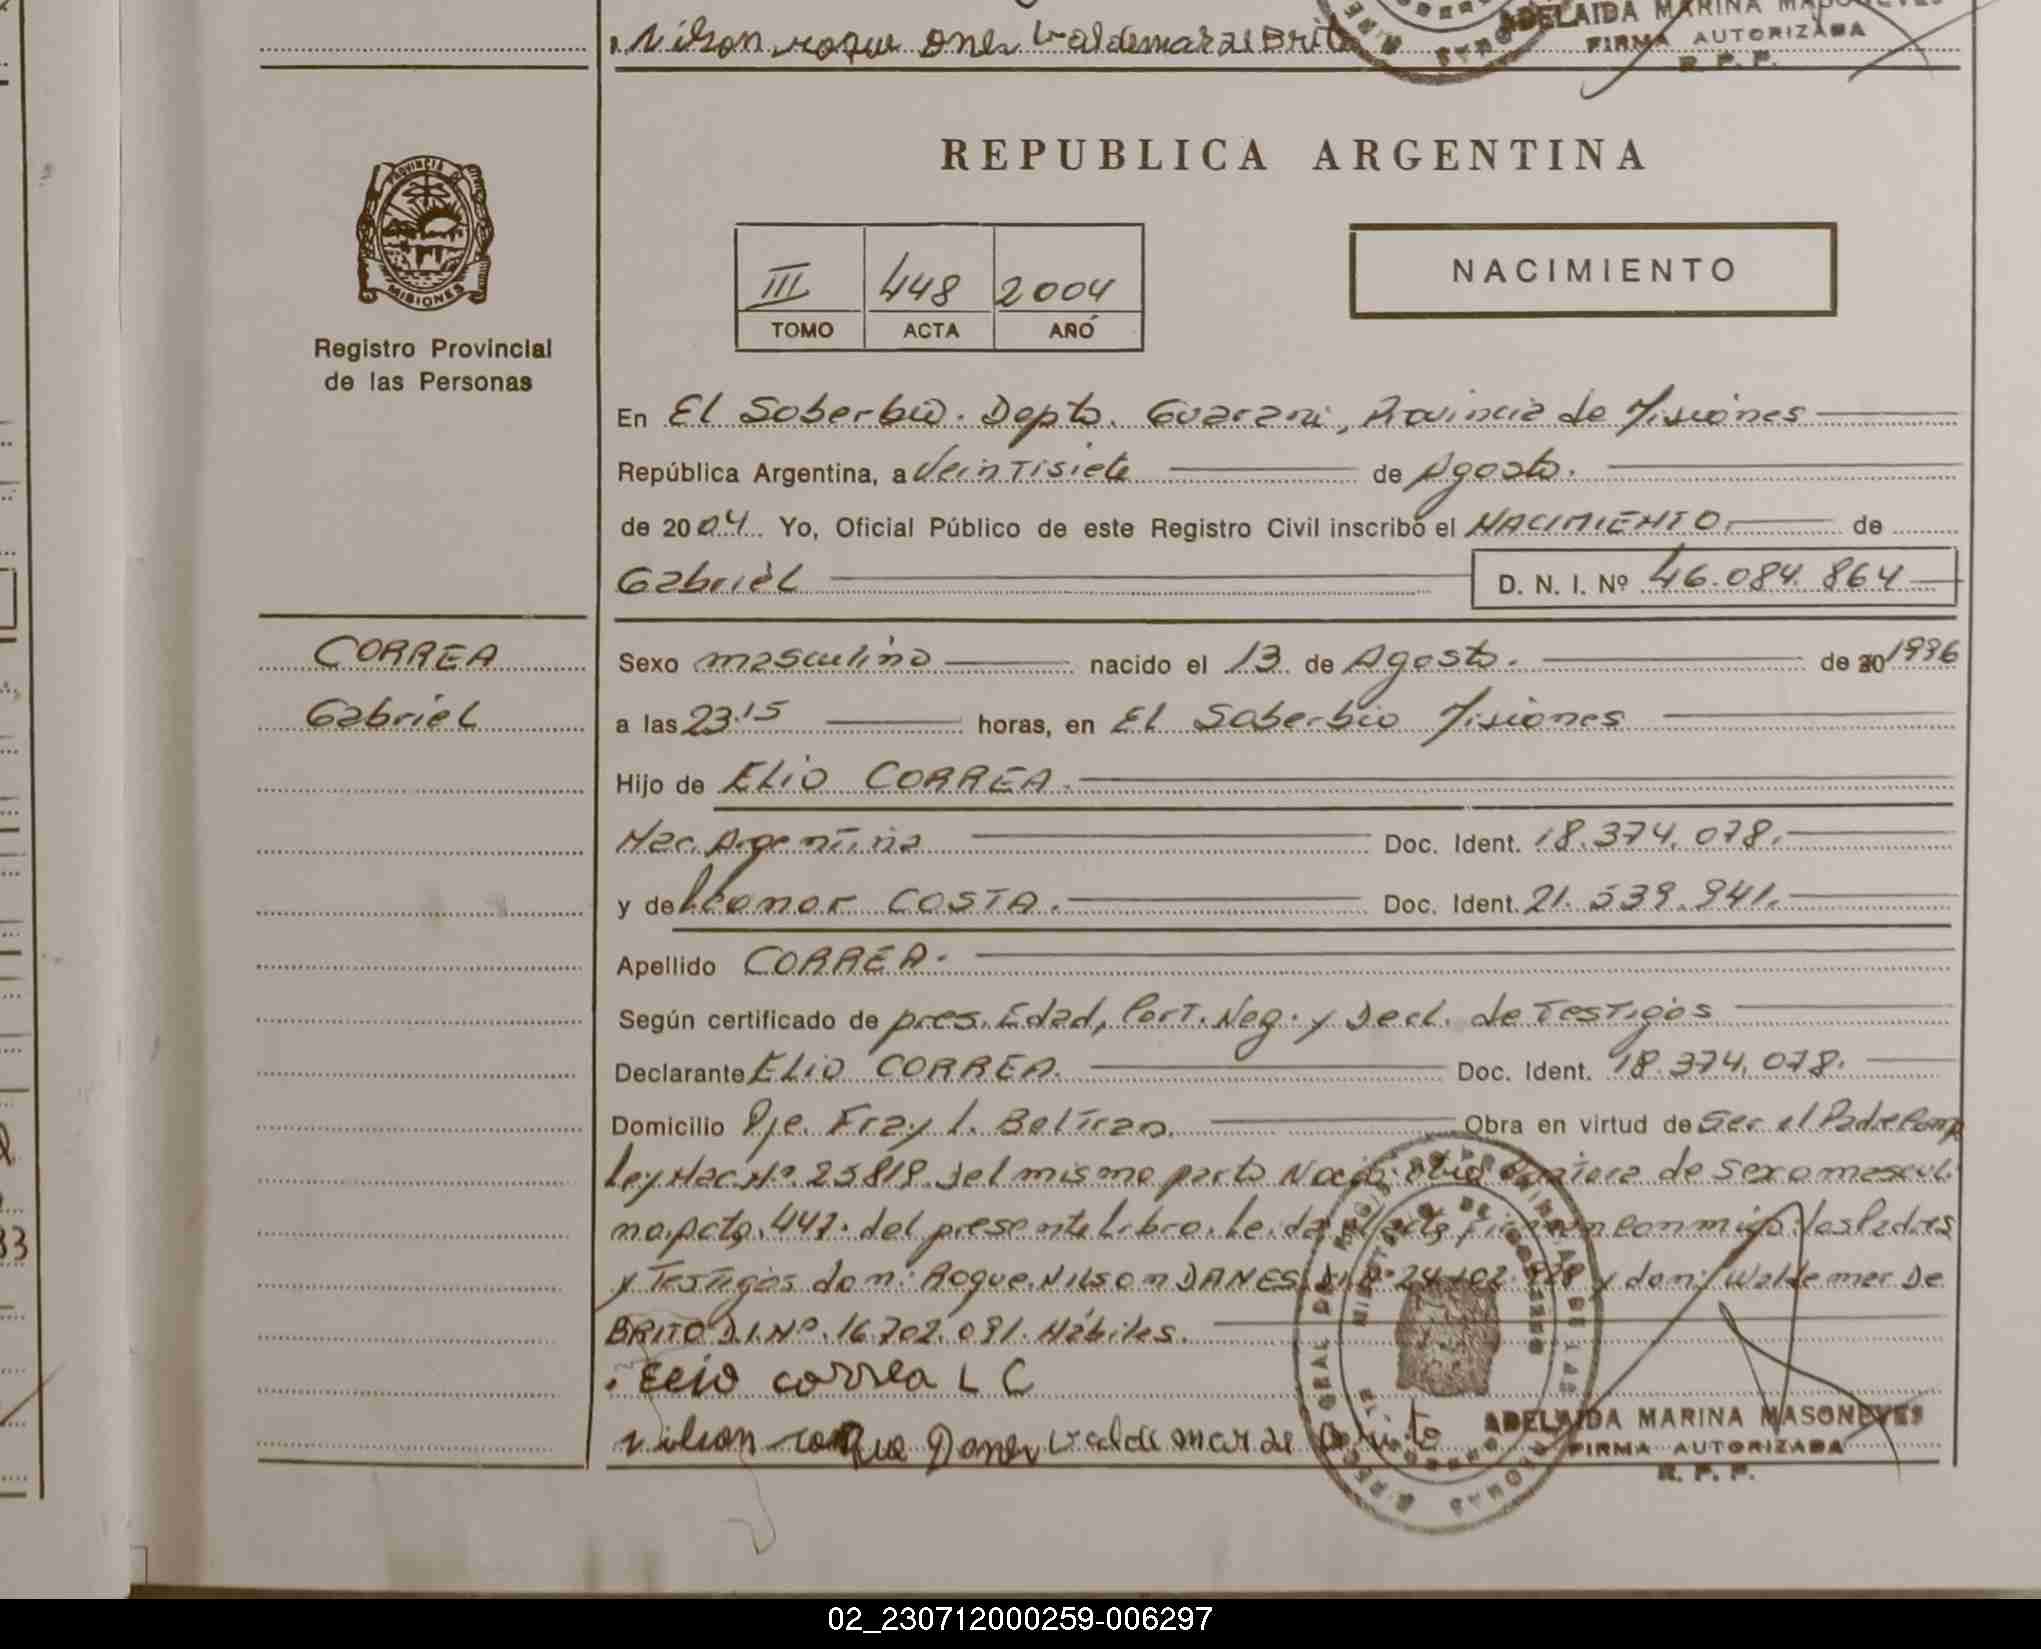 Nilson roque Danes Valdemar de Brito
ADELAIDA MARINA MASONEVES
FIRMA AUTORIZADA
R. P. P.
PROVINCIA DE
MISIONES
Registro Provincial
de las Personas
REPUBLICA ARGENTINA
III 448 2004
TOMO ACTA AÑO
NACIMIENTO
En El Soberbio. Depto. Guarani, Provincia de Misiones
República Argentina, a Veintisiete de Agosto.
de 2004. Yo, Oficial Público de este Registro Civil inscribo el NACIMIENTO. de
Gabriel D. N. I. Nº 46.084.864
CORREA
Gabriel
Sexo masculino nacido el 13 de Agosto. de 20 1996
a las 23.15 horas, en El Soberbio Misiones
Hijo de ELiO CORREA.
Nac. Argentina Doc. Ident. 18.374.078.
y de Leonor COSTA. Doc. Ident. 21.539.941.
Apellido CORREA.
Según certificado de pres. Edad, Part. Neg. y Decl. de Testigos
Declarante ELiO CORREA. Doc. Ident. 18.374.078.
Domicilio Pje. Fray L. Beltran. Obra en virtud de Ser el Padre Comp
Ley Nac. Nº. 25819. del mismo parto Nació otra criatura de Sexo mascul
no. acta. 447. del presente Libro. Leida el acta firman conmigo: los Padres
y Testigos don: Roque Nilson DANES D.I.Nº 24.102.928 y don: Waldemar De
BRITO D.I.Nº. 16.702.091. Hábiles.
Elio correa L C
Nilson roque Danes Valdemar de Brito
ADELAIDA MARINA MASONEVES
FIRMA AUTORIZADA
R. P. P.
02_230712000259-006297